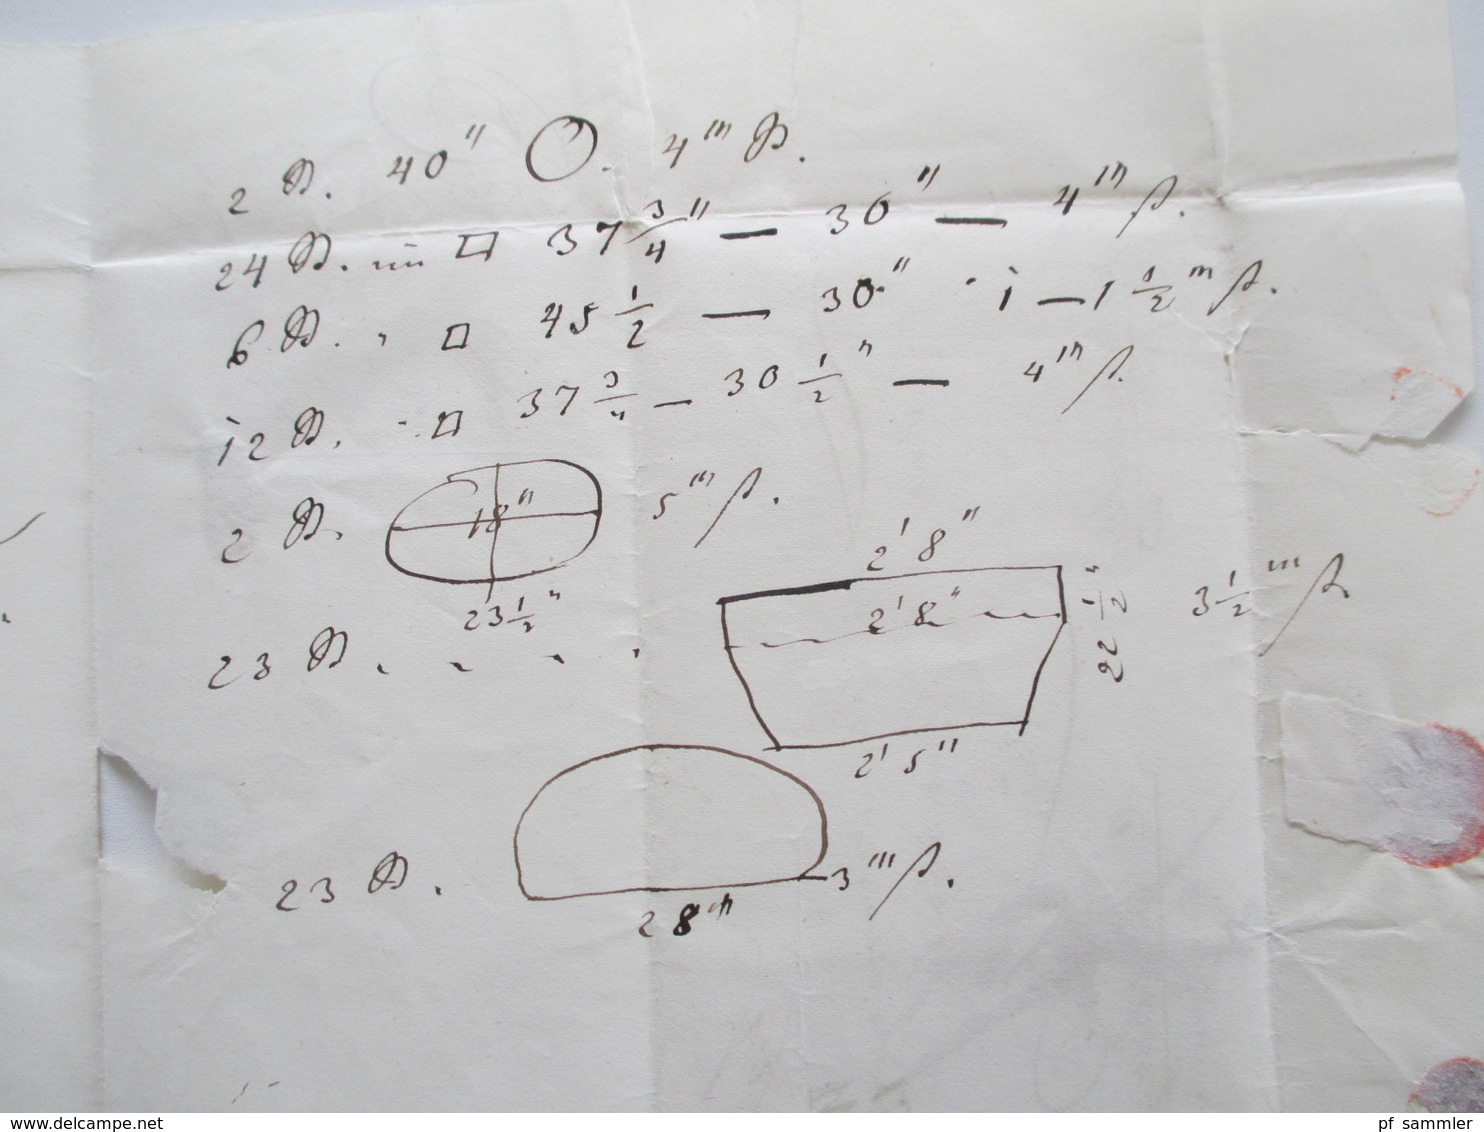 2 B. 40" O. 4''' B.
24 B. im □ 37 3/4" — 36" — 4''' st.
6 B. " □ 45 1/2 — 30" 1 — 1 1/2''' st.
12 B. " □ 37 3/4 — 30 1/2" — 4''' st.
2 B. 18" 5''' st.
23 1/2"
2' 8"
2' 8" 22 1/2" 3 1/2''' st.
23 B.
2' 5"
23 B. 3''' st.
28"
www.delcampe.net
pf_sammler